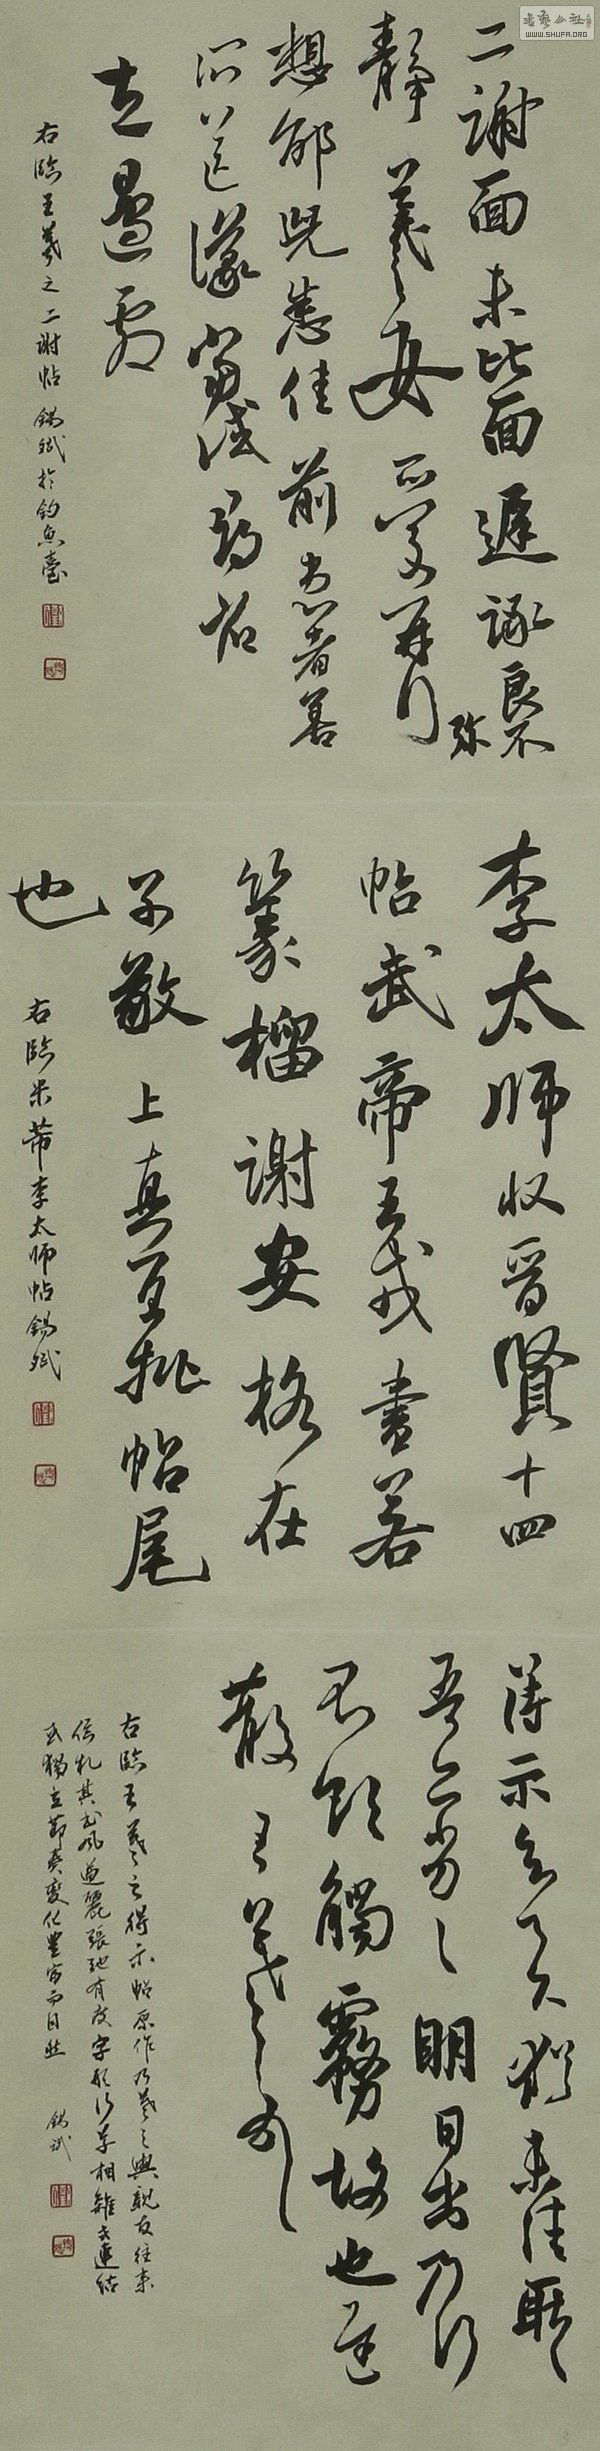 书艺公社
WWW.SHUFA.ORG
二謝面未比面遲詠良不
靜羲之女愛再拜
想邰兒悉佳前患者善
所送議當試尋省
左邊劇
右臨王羲之二謝帖 錫斌於釣魚臺
李太師收晉賢十四
帖武帝王戎書若
篆榴謝安格在
子敬上真宜批帖尾
也
右臨米芾李太師帖錫斌
得示知足下猶未佳耿耿
吾亦劣劣明日出乃行
不欲觸霧故也遲
散王羲之頓首
右臨王羲之得示帖原作乃羲之與親友往來
信札其書風遒麗張弛有致字形行草相雜或連結
或獨立節奏變化豐富而自然 錫斌